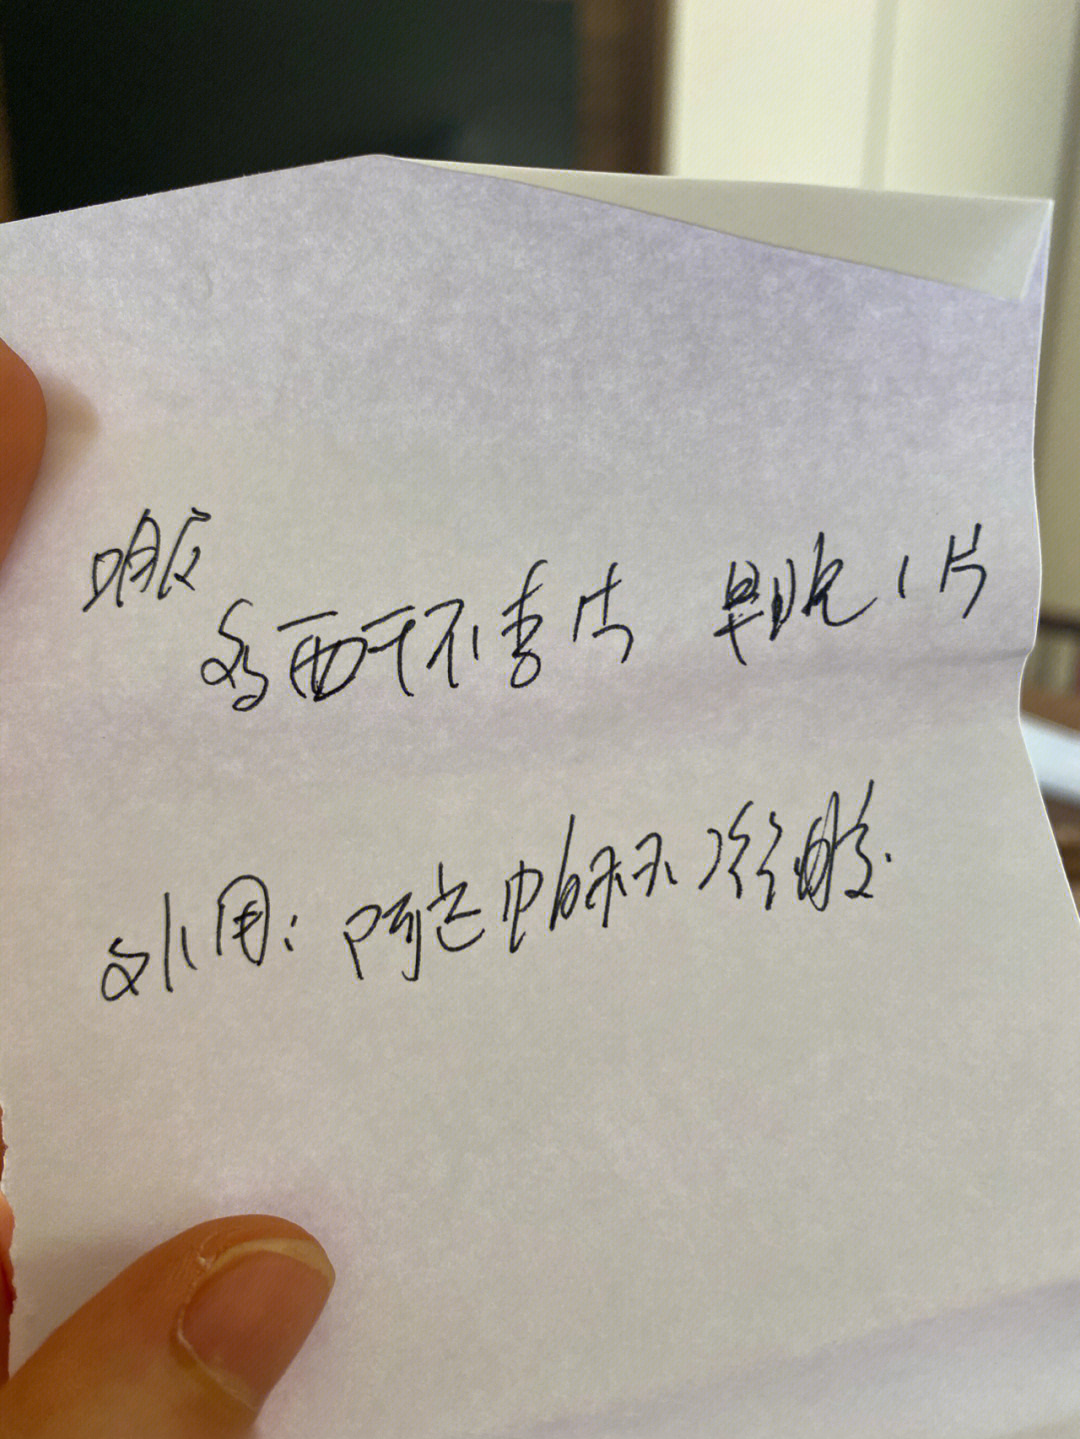 口服
多西环素片 早晚1片
外用：阿达帕林凝胶